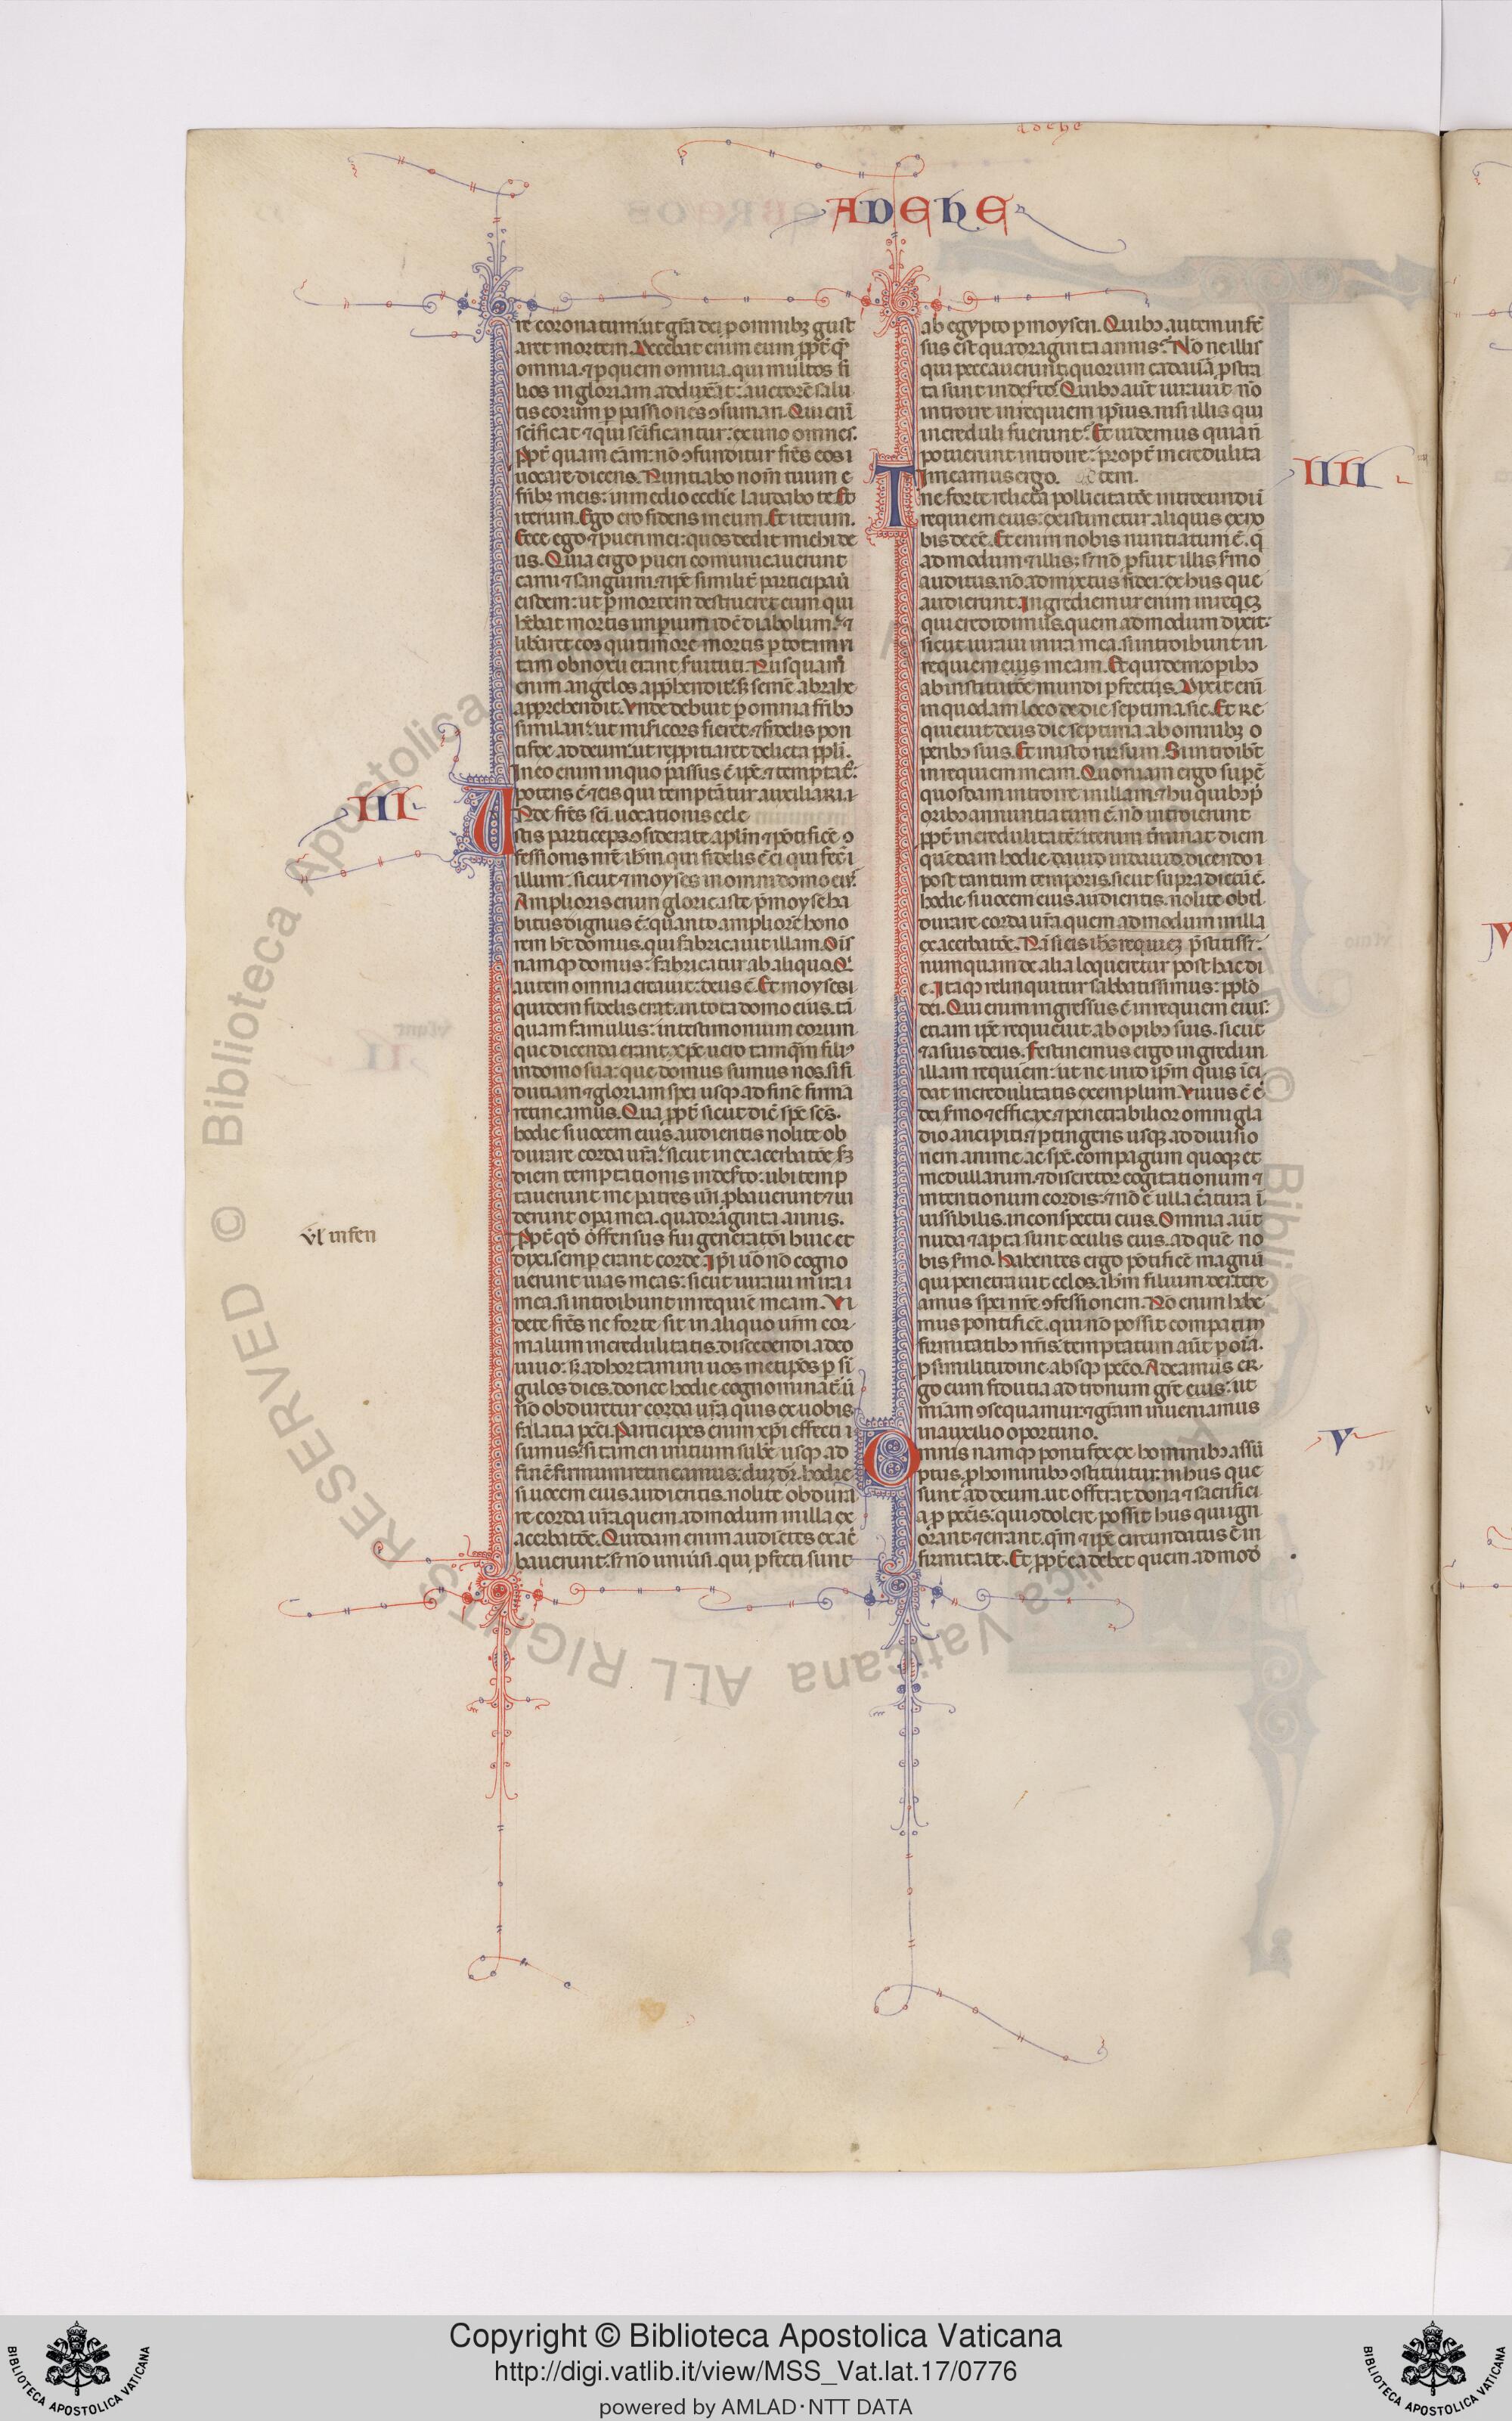 ADEHE
re coronatum. ut gr̄a dei p omnibꝫ gust
aret mortem. Decebat enim eum ppt̄ qͫ
omnia. ⁊ p quem omnia. qui multos fi
lios in gloriam adduxerat: auctorē salu
tis eorum p passiones ꝯsumari. Qui enī
scīficat ⁊ qui scīficantur: ex uno omnes.
Ppt̄ quam cām: nō ꝯfunditur frēs eos
uocare dicens. Nuntiabo nom̄ tuum
frībꝫ meis: in medio ecclīe laudabo te. Et
iterum. Ego ero fidens in eum. Et iterum.
Ecce ego ⁊ pueri mei: quos dedit michi de
us. Quia ergo pueri comunicauerunt
carni ⁊ sanguini. ⁊ ip̄e similit̄ participauit
eisdem: ut p mortem destrueret eum qui
hēbat mortis impium id ē diabolum. ⁊
liberaret eos qui timore mortis p totam ui
tam obnoxii erant seruituti. Nusquam
enim angelos apphendit. sꝫ semē abrahe
apprehendit. Vnde debuit p omnia frībꝫ
similari. ut misericors fieret ⁊ fidelis pon
tifex ad deum: ut reppitiaret delicta ppli.
In eo enim in quo passus ē ip̄e ⁊ temptatꝰ:
potens ē ⁊ eis qui temptātur auxiliari.
Vnde frēs scī. uocationis cele
stis participes ꝯsiderate aplm̄ ⁊ pōtificē ꝯ
fessionis nr̄e ihm̄. qui fidelis ē ei qui fecit
illum: sicut ⁊ moyses in omni domo eiꝰ.
Amplioris enim glorie iste p moyse ha
bitus dignus ē: quanto ampliorē hono
rem h̄t domus. qui fabricauit illam. Oīs
namqꝫ domus: fabricatur ab aliquo. Qͥ
autem omnia creauit: deus ē. Et moyses
quidem fidelis erat. in tota domo eius. tā
quam famulus: in testimonium eorum
que dicenda erant. xp̄c uero tamqͫ filiꝰ
in domo sua: que domus sumus nos. si fi
dutiam ⁊ gloriam spei usqꝫ ad finē firmā
retineamus. Qua ppt̄ sicut dic̄ spc̄ scs̄.
hodie si uocem eius audieritis nolite ob
durare corda ur̄a. sicut in exacerbatōe sꝫ
diem temptationis in desto: ubi temp
tauerunt me patres uri. pbauerunt ⁊ ui
derunt opa mea. quadraginta annis.
Ppt̄ qd̄ offensus fui generatōi huic et
dixi. semp errant corde. Ipi uō nō cogno
uerunt uias meas: sicut iuraui in ira
mea. si introibunt in requiē meam. Vi
dete frēs ne forte sit in aliquo urm̄ cor
malum incredulitatis. discedendi a deo
uiuo: sꝫ adhortamini uos metipos p si
gulos dies. donec hodie cognominat̄. ut
nō obduretur corda ur̄a quis ex uobis
fallatia pcc̄i. Participes enim xpi effecti
sumus: si tamen initium sube. usqꝫ ad
finē firmum retineamus. dum dr̄. hodie
si uocem eius audieritis. nolite obdura
re corda ur̄a. quem admodum in illa ex
acerbatōe. Quidam enim audiētes exacer
bauerunt: sꝫ nō uniūsi. qui pfecti sunt
III
vl' infen
ab egypto p moysen. Quibꝫ autem infē
sus est quadraginta annis? Nōne illis
qui peccauerunt. quorum cadauera pstra
ta sunt in desto? Quibꝫ aūt iurauit. nō
introire in requiem ipius. nisi illis qui
increduli fuerunt? Et uidemus quia nō
potuerunt introire: propt̄ incredulita
Timeamus ergo. tem.
ne forte relicta pollicitatōe introeundi ī
requiem eius: existimetur aliquis ex uo
bis deesse. Et enim nobis nuntiatum ē. q̄
admodum ⁊ illis: sꝫ nō pfuit illis s̄mo
auditus. nō admixtus fidei: ex hiis que
audierunt. Ingrediemur enim in requiē
qui credidimus. quem admodum dixit:
sicut iuraui in ira mea. si introibunt in
requiem eius meam. Et quidem opibꝫ
ab institutōe mundi pfectis. Dixit enī
in quodam loco de die septima sic. Et re
quieuit deus die septima ab omnibꝫ o
peribꝫ suis. Et in isto rursum. Si introibt̄
in requiem meam. Quoniam ergo supē
quosdam introire in illam. ⁊ hii quibꝫ p
oribꝫ annuntiatum ē. nō introierunt
ppt̄ incredulitatē: iterum t̄minat diem
quēdam hodie. dauid in dauid. dicendo
post tantum temporis. sicut supra dictū ē.
hodie si uocem eius audieritis. nolite obd
durare corda ur̄a. quem admodum in illa
exacerbatōe. Nā si eis ihs̄ requiem pstitisset.
numquam de alia loqueretur post hac di
e. Itaqꝫ relinquitur sabbatissimus: pplo
dei. Qui enim ingressus ē in requiem eius:
etiam ip̄e requieuit. ab opibꝫ suis. sicut
⁊ a suis deus. Festinemus ergo ingredi in
illam requiem: ut ne in id ipm̄ quis ici
dat incredulitatis exemplum. Viuus ē ē
dei s̄mo ⁊ efficax. ⁊ penetrabilior omni gla
dio ancipiti. ⁊ ptingens usqꝫ ad diuisio
nem anime ac spc̄. compagum quoqꝫ et
medullarum. ⁊ discretor cogitationum ⁊
intentionum cordis: ⁊ nō ē ulla c̄atura ī
uisibilis. in conspectu eius. Omnia aūt
nuda ⁊ apta sunt oculis eius. ad quē no
bis s̄mo. Habentes ergo pōtificē magnū
qui penetrauit celos. ihm̄ filium dei: tene
amus spei nr̄e ꝯfessionem. Nō enim habe
mus pontificē. qui nō possit compati in
firmitatibꝫ nris: temptatum aūt p oīa.
p similitudine absqꝫ pccō. Adeamus er
go cum fidutia ad tronum gr̄e eius: ut
miam ꝯsequamur. ⁊ gr̄am inueniamus
in auxilio oportuno.
Omnis namqꝫ pontifex ex hominibꝫ assū
ptus. p hominibꝫ ꝯstituitur: in hiis que
sunt ad deum. ut offerat dona ⁊ sacrifici
a. p pccīs: qui ꝯdolere possit hiis qui ign
orant ⁊ errant. qm̄ ⁊ ip̄e circundatus ē in
firmitate. Et ppt̄ ea debet quem admod
IIII
V
Copyright © Biblioteca Apostolica Vaticana
http://digi.vatlib.it/view/MSS_Vat.lat.17/0776
powered by AMLAD·NTT DATA
BIBLIOTECA APOSTOLICA VATICANA
BIBLIOTECA APOSTOLICA VATICANA
© Biblioteca Apostolica Vaticana ALL RIGHTS RESERVED